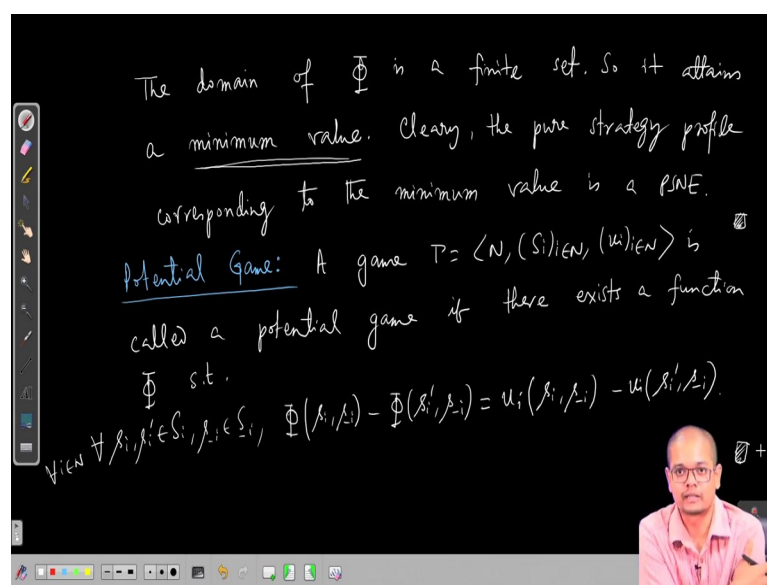 The domain of Φ is a finite set. So it attains
a minimum value. Cleary, the pure strategy profile
corresponding to the minimum value is a PSNE.
Potential Game: A game Γ = ⟨N, (Si)i∈N, (ui)i∈N⟩ is
called a potential game if there exists a function
Φ s.t.
∀i∈N ∀ si, si' ∈ Si, s-i ∈ S-i, Φ(si, s-i) - Φ(si', s-i) = ui(si, s-i) - ui(si', s-i).